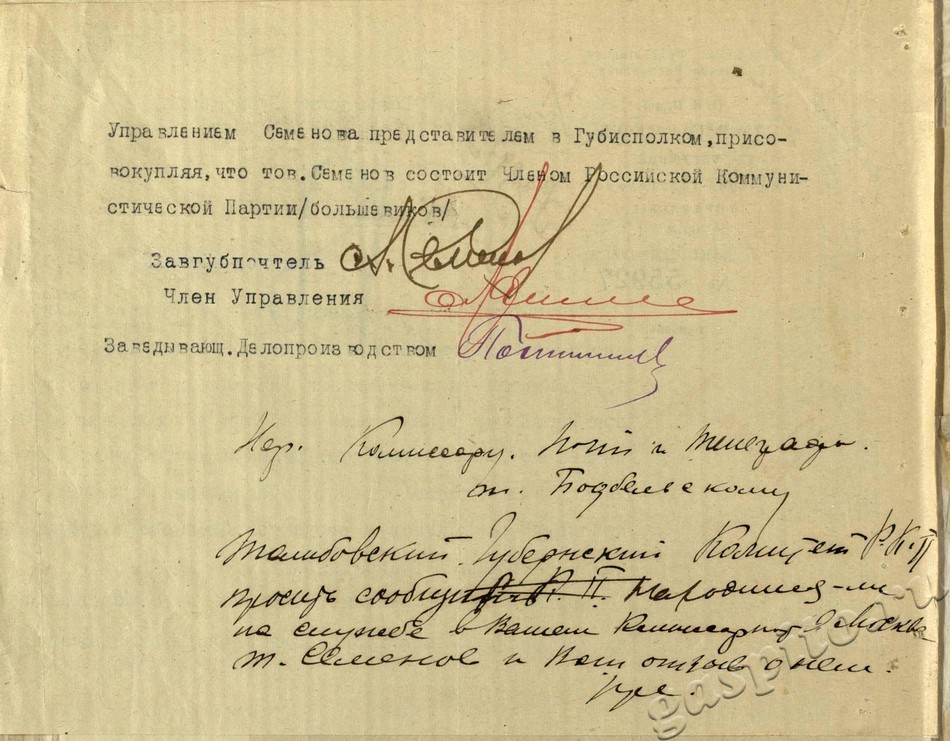 Управлением Семенова представителем в Губисполком,присо-
вокупляя,что тов.Семенов состоит Членом Российской Коммуни-
стической Партии/большевиков/
Завгубпочтель
Член Управления
Заведывающ.Делопроизводством
Нар. Комиссару. Почт и Телеграфа.
т. Подбельскому
Тамбовский Губернский Комитет Р.К.П
просить сообщить
на службе в Вашем Москве
т. Семенов и Ваш отзыв о нем.
gaspito.ru